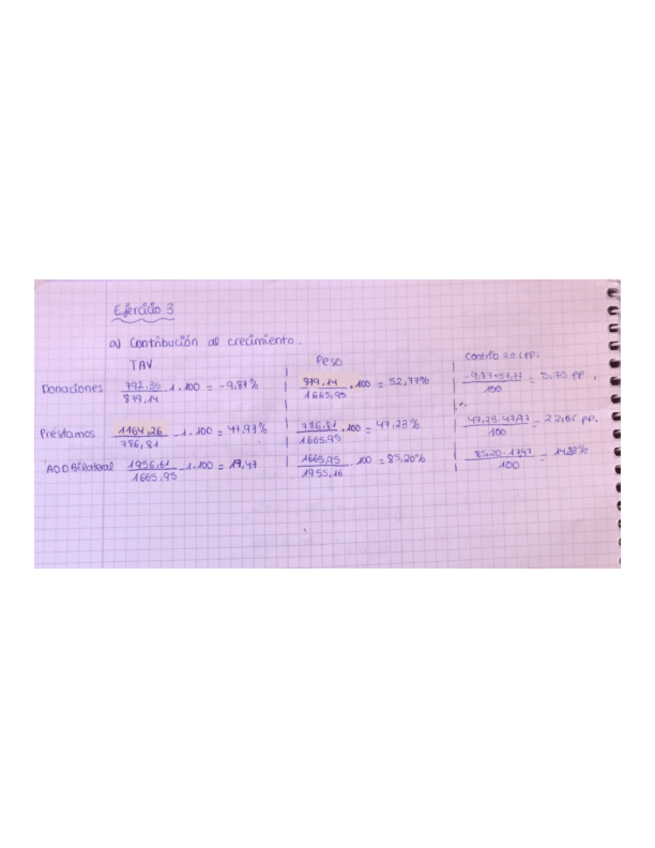 Ejercicio 3
a) Contribución al crecimiento.
TAV Peso Contrib 2.0 (PP)
Donaciones 792,35 / 879,14 -1 . 100 = -9,87% 879,14 / 1665,95 . 100 = 52,77% -9,87 · 52,77 / 100 = 5,70 pp.
Préstamos 1164,26 / 786,81 -1 . 100 = 47,97% 786,81 / 1665,95 . 100 = 47,23% 47,23 · 47,97 / 100 = 22,65 pp.
AOD Bilateral 1956,61 / 1665,95 -1 . 100 = 17,47 1665,95 / 1955,16 . 100 = 85,20% 85,20 · 17,47 / 100 = 14,88%